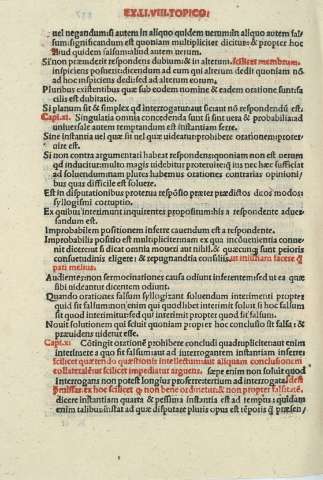 EX.LI.VIII.TOPICO:
uel negandum: si autem in aliquo quidem uerum: in aliquo autem fal-
sum: significandum est quoniam multipliciter dicitur: & propter hoc
Aliud quidem falsum: aliud autem uerum.
Si non præuiderit respondens dubium: & in alterum. scilicet membrum.
inspiciens posuerit: dicendum ad eum qui alterum dedit quoniam nõ
ad hoc inspiciens dedi: sed ad alterum eorum.
Pluribus existentibus quæ sub eodem nomine & eadem oratione sunt: fa-
cilis est dubitatio.
Si planum sit & simplex qd interrogatur: aut sic: aut nõ respondendũ est.
Capi.xi. Singularia omnia concedenda sunt si sint uera & probabilia: ad
uniuersale autem temptandum est instantiam ferre.
Sine instantia uel quæ sit uel quæ uideatur prohibere orationem: proter-
uire est.
Si non contra argumentari habeat respondens: quoniam non est uerum
qd inducitur: multo magis uidebitur proteruire: qq nec hæc sufficiat
ad soluendum: nam plures habemus orationes contrarias opinioni/
bus quas difficile est soluere.
Est in disputationibus proterua respõsio præter prædictos dicos modos:
syllogismi corruptio.
Ex quibus interimunt inquirentes propositum: his a respondente aduer-
sandum est.
Improbabilem positionem inferre cauendum est a respondente.
Improbabilis positio est multipliciter: nam ex qua incõuenientia conue-
nit dicere: ut si dicat omnia moueri aut nihil. & quæcunq; sunt peioris
consuetudinis eligere: & repugnantia consiliis. ut iniustiam facere q̃
pati melius.
Audiente: non sermocinationes causa odiunt inferentem: sed ut ea quæ
sibi uideantur dicentem odiunt.
Quando orationes falsum syllogizant soluendum interimenti propter
quid fit falsum: non enim qui quodlibet interimit soluit si hoc falsum
quod interimitur: sed qui interimit propter quod fit falsum.
Nouit solutionem qui scluit quoniam propter hoc conclusio fit falsa: &
præuidens uidenur esse.
Capi.x: Cõtingit orationẽ prohibere concludi quadrupliciter: aut enim
interimere a quo fit falsum: aut ad interrogantem instantiam inferre:
scilicet quærendo quæstionis intellectum: uel aliquam conclusionem
collateralem: scilicet impediatur arguens. sæpe enim non soluit quod
Interrogans non potest longius proferre: tertium ad interrogata: defi
præmissas ex hoc scilicet q non bene ordinetur: & non propter falsitatẽ.
dicere instantiam quarta & pessima instantia est ad tempus: quidam
enim talibus instat ad quæ disputare pluris opus est tẽporis q̃ præsen/